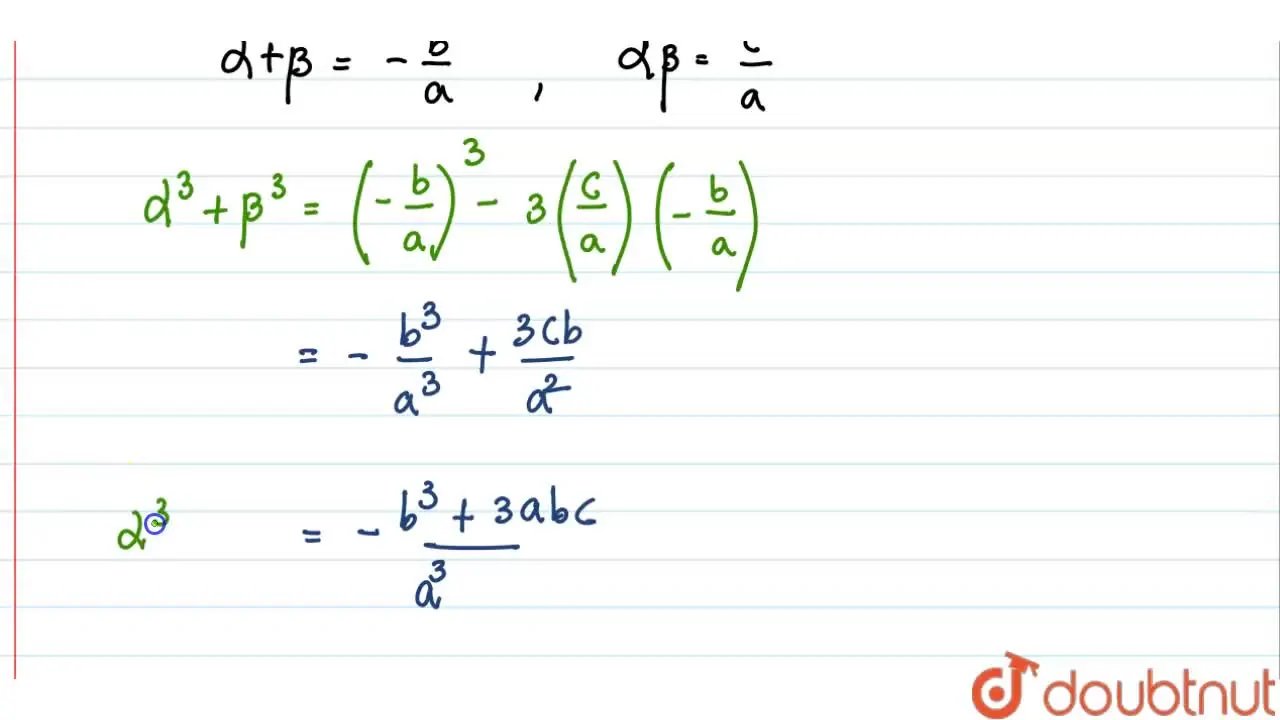 α+β = - b/a , αβ = c/a
α³ + β³ = (- b/a)³ - 3 (c/a) (- b/a)
= - b³/a³ + 3cb/a²
α³ = - b³ + 3abc/a³
doubtnut